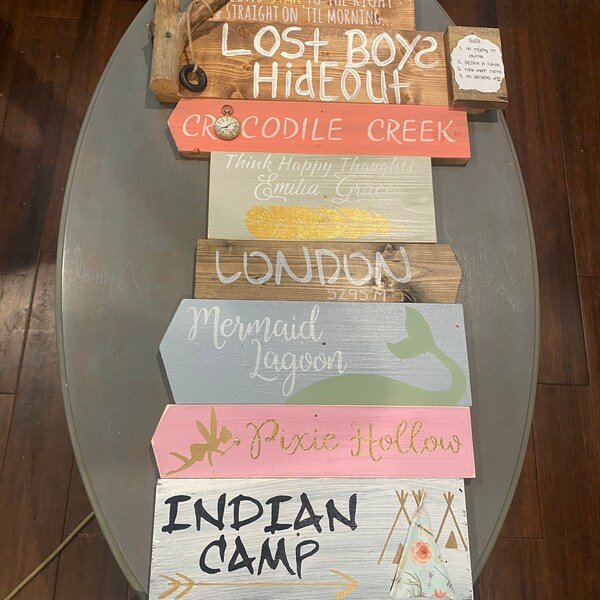 STAR TO THE RIGHT
& STRAIGHT ON 'TIL MORNING...
LOST BOYS
HidEOut
CROCODILE CREEK
Think Happy Thoughts,
Emilia Grace
LONDON
5295 M
Mermaid
Lagoon
Pixie Hollow
INDIAN
CAMP